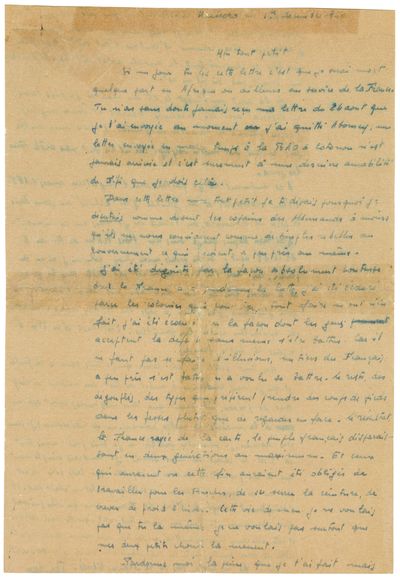 Mon tout petit
Si un jour tu lis cette lettre c'est que je serai mort
quelque part en Afrique ou ailleurs au service de la France.
Tu n'as sans doute jamais reçu ma lettre du 26 août que
je t'ai envoyée au moment où j'ai quitté Abomey, une
lettre envoyée en même temps à la à Cotonou n'est
jamais arrivée et c'est surement à une dernière amabilité
de que je dois cela.
Dans cette lettre mon tout petit je te disais pourquoi je
comme disent les copains des Allemands à moins
qu'ils ne nous considèrent comme de simples rebelles au
gouvernement ce qui revient à peu près au même.
J'ai été dégoûté par la façon absolument honteuse
dont la France a abandonné la lutte, j'ai été écœuré
parce que les colonies qui pouvaient tout faire n'ont rien
fait, j'ai été écœuré par la façon dont les gens
acceptent la défaite sans même s'être battus. Car il
ne faut pas se faire d'illusions, un tiers des Français
à peu près s'est battu ou a voulu se battre. le reste, des
dégonflés, des types qui préfèrent prendre des coups de pieds
dans les fesses plutôt que de regarder en face. le résultat
la France rayée de la carte, le peuple français disparais-
sant en deux générations au maximum. Et ceux
qui auraient vu cette fin auraient été obligés de
travailler pour les Boches, de se serrer la ceinture, de
crever de froid l'hiver. Cette vie de chien je ne voulais
pas que tu la mènes je ne voulais pas surtout que
mes deux petits choux la mènent.
Pardonne moi la peine que je t'ai fait mais